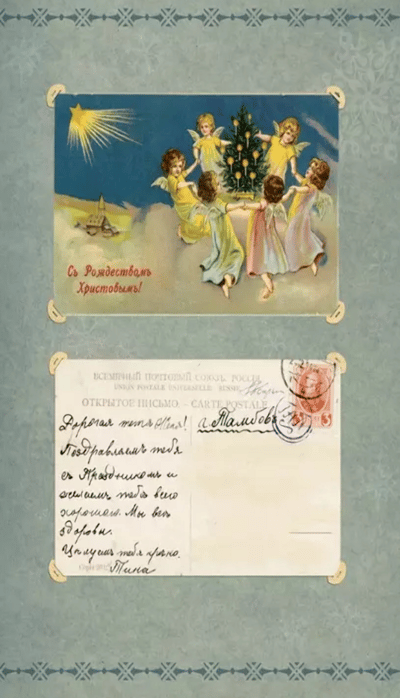 Съ Рождествомъ
Христовымъ!
ВСЕМІРНЫЙ ПОЧТОВЫЙ СОЮЗЪ. РОССІЯ
UNION POSTALE UNIVERSELLE. RUSSIE.
ОТКРЫТОЕ ПИСЬМО — CARTE POSTALE
Дорогая тетя
г. Тамбовъ
Поздравляемъ тебя
съ Праздникомъ и
желаемъ тебѣ всего
хорошаго. Мы всѣ
здоровы.
Цѣлуемъ тебя крѣпко.
Тина
3